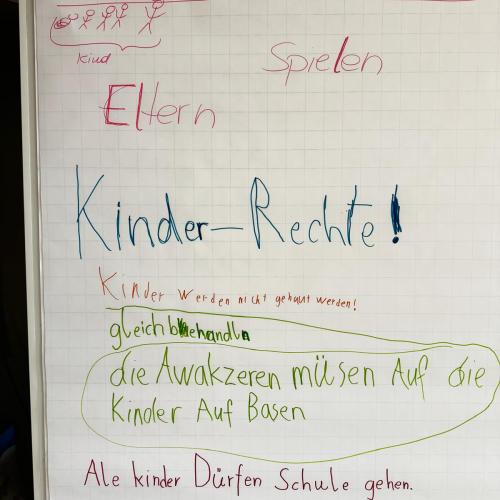 Kind
Spielen
Eltern
Kinder-Rechte!
Kinder werden nicht gehaut werden!
gleich behandln
die Awakzeren müsen Auf die
Kinder Auf Basen
Ale kinder Dürfen Schule gehen.